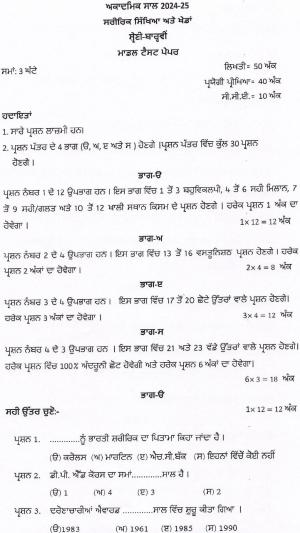 ਅਕਾਦਮਿਕ ਸਾਲ 2024-25
ਸਰੀਰਿਕ ਸਿੱਖਿਆ ਅਤੇ ਖੇਡਾਂ
ਸ਼੍ਰੇਣੀ-ਬਾਰ੍ਹਵੀਂ
ਮਾਡਲ ਟੈਸਟ ਪੇਪਰ
ਸਮਾਂ: 3 ਘੰਟੇ
ਲਿਖਤੀ= 50 ਅੰਕ
ਪ੍ਰਯੋਗੀ ਪ੍ਰੀਖਿਆ= 40 ਅੰਕ
ਸੀ.ਸੀ.ਈ.= 10 ਅੰਕ
ਹਦਾਇਤਾਂ
1. ਸਾਰੇ ਪ੍ਰਸ਼ਨ ਲਾਜ਼ਮੀ ਹਨ।
2. ਪ੍ਰਸ਼ਨ ਪੱਤਰ ਦੇ 4 ਭਾਗ (ੳ, ਅ, ੲ ਅਤੇ ਸ ) ਹੋਣਗੇ ।ਪ੍ਰਸ਼ਨ ਪੱਤਰ ਵਿੱਚ ਕੁੱਲ 30 ਪ੍ਰਸ਼ਨ
ਹੋਣਗੇ ।
ਭਾਗ-ੳ
ਪ੍ਰਸ਼ਨ ਨੰਬਰ 1 ਦੇ 12 ਉਪਭਾਗ ਹਨ। ਇਸ ਭਾਗ ਵਿੱਚ 1 ਤੋਂ 3 ਬਹੁਵਿਕਲਪੀ, 4 ਤੋਂ 6 ਸਹੀ ਮਿਲਾਨ, 7
ਤੋਂ 9 ਸਹੀ/ਗਲਤ ਅਤੇ 10 ਤੋਂ 12 ਖਾਲੀ ਸਥਾਨ ਕਿਸਮ ਦੇ ਪ੍ਰਸ਼ਨ ਹੋਣਗੇ । ਹਰੇਕ ਪ੍ਰਸ਼ਨ 1 ਅੰਕ ਦਾ
ਹੋਵੇਗਾ । 1× 12 = 12 ਅੰਕ
ਭਾਗ-ਅ
ਪ੍ਰਸ਼ਨ ਨੰਬਰ 2 ਦੇ 4 ਉਪਭਾਗ ਹਨ। ਇਸ ਭਾਗ ਵਿੱਚ 13 ਤੋਂ 16 ਵਸਤੂਨਿਸ਼ਠ ਪ੍ਰਸ਼ਨ ਹੋਣਗੇ । ਹਰੇਕ
ਪ੍ਰਸ਼ਨ 2 ਅੰਕਾਂ ਦਾ ਹੋਵੇਗਾ । 2× 4 = 8 ਅੰਕ
ਭਾਗ-ੲ
ਪ੍ਰਸ਼ਨ ਨੰਬਰ 3 ਦੇ 4 ਉਪਭਾਗ ਹਨ। ਇਸ ਭਾਗ ਵਿੱਚ 17 ਤੋਂ 20 ਛੋਟੇ ਉੱਤਰਾਂ ਵਾਲੇ ਪ੍ਰਸ਼ਨ ਹੋਣਗੇ।
ਹਰੇਕ ਪ੍ਰਸ਼ਨ 3 ਅੰਕਾਂ ਦਾ ਹੋਵੇਗਾ । 3× 4 = 12 ਅੰਕ
ਭਾਗ-ਸ
ਪ੍ਰਸ਼ਨ ਨੰਬਰ 4 ਦੇ 3 ਉਪਭਾਗ ਹਨ । ਇਸ ਭਾਗ ਵਿੱਚ 21 ਅਤੇ 23 ਵੱਡੇ ਉੱਤਰਾਂ ਵਾਲੇ ਪ੍ਰਸ਼ਨ ਹੋਣਗੇ।
ਹਰੇਕ ਪ੍ਰਸ਼ਨ ਵਿੱਚ 100% ਅੰਦਰੂਨੀ ਛੋਟ ਹੋਵੇਗੀ ਅਤੇ ਹਰੇਕ ਪ੍ਰਸ਼ਨ 6 ਅੰਕਾਂ ਦਾ ਹੋਵੇਗਾ ।
6× 3 = 18 ਅੰਕ
ਭਾਗ-ੳ
ਸਹੀ ਉੱਤਰ ਚੁਣੋ:- 1× 12 = 12 ਅੰਕ
ਪ੍ਰਸ਼ਨ 1. ............ਨੂੰ ਭਾਰਤੀ ਸ਼ਰੀਰਿਕ ਦਾ ਪਿਤਾਮਾ ਕਿਹਾ ਜਾਂਦਾ ਹੈ ।
(ੳ) ਕਰੋਲਸ (ਅ) ਮਾਰਟਿਨ (ੲ) ਐਚ.ਸੀ.ਬੱਕ (ਸ) ਇਹਨਾਂ ਵਿੱਚੋਂ ਕੋਈ ਨਹੀਂ
ਪ੍ਰਸ਼ਨ 2. ਡੀ.ਪੀ. ਐੱਡ ਕੋਰਸ ਦਾ ਸਮਾਂ............ਸਾਲ ਹੈ ।
(ੳ) 1 (ਅ) 4 (ੲ) 3 (ਸ) 2
ਪ੍ਰਸ਼ਨ 3. ਦਰੋਣਾਚਾਰੀਆ ਐਵਾਰਡ ............ਸਾਲ ਵਿੱਚ ਸ਼ੁਰੂ ਕੀਤਾ ਗਿਆ ।
(ੳ)1983 (ਅ) 1961 (ੲ) 1985 (ਸ) 1990